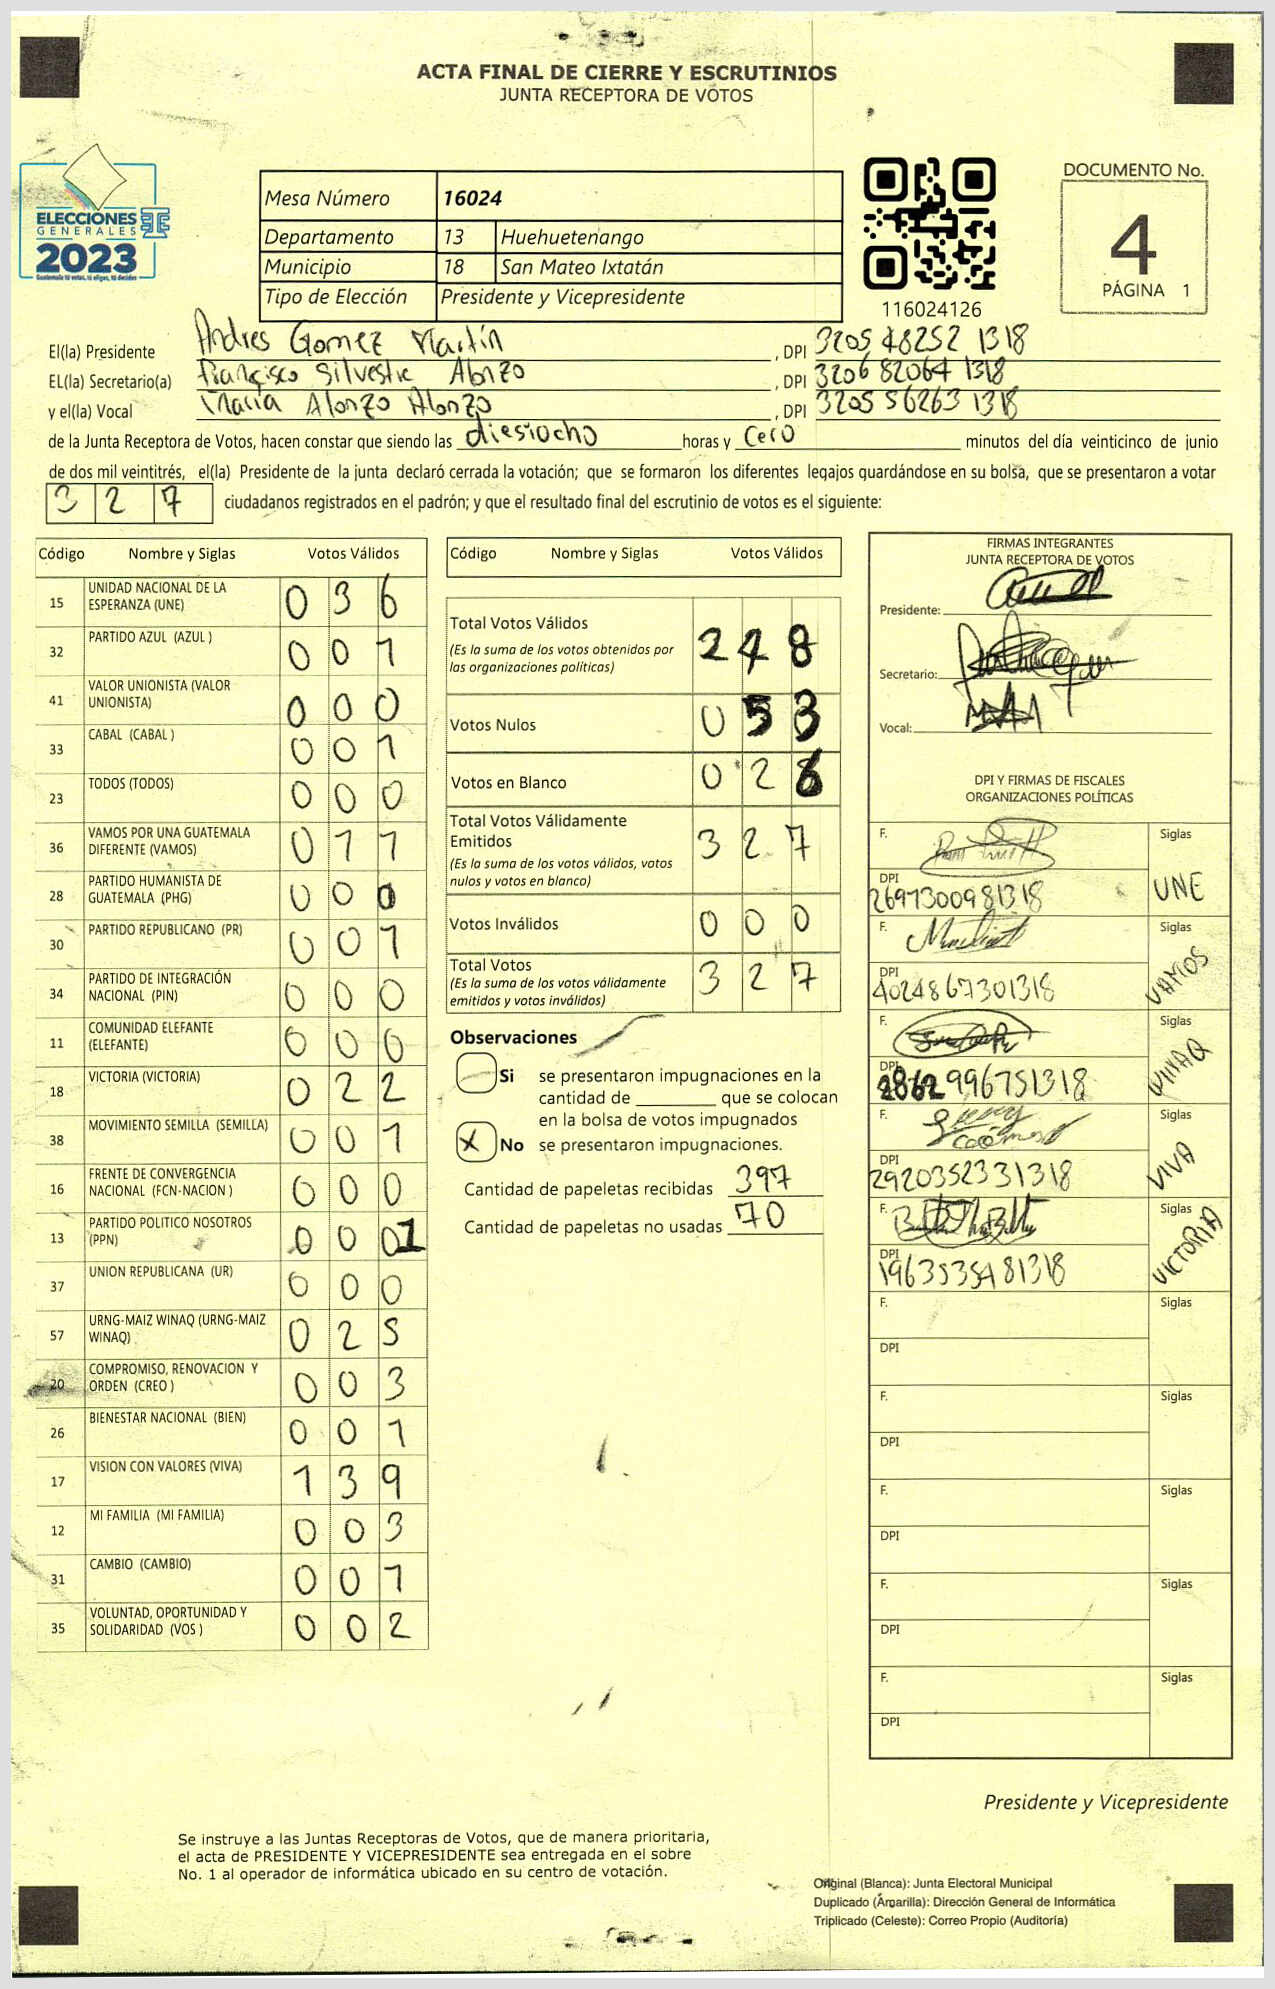 ACTA FINAL DE CIERRE Y ESCRUTINIOS
JUNTA RECEPTORA DE VOTOS
ELECCIONES
GENERALES
2023
Guatemala tú votas, tú eliges, tú decides
Mesa Número 16024
Departamento 13 Huehuetenango
Municipio 18 San Mateo Ixtatán
Tipo de Elección Presidente y Vicepresidente
116024126
DOCUMENTO No.
4
PÁGINA 1
El(la) Presidente Andres Gomez Martín , DPI 3205 48252 1318
EL(la) Secretario(a) Francisco Silvestre Alonzo , DPI 3206 82064 1318
y el(la) Vocal Maria Alonzo Alonzo , DPI 3205 56263 1318
de la Junta Receptora de Votos, hacen constar que siendo las diesiocho horas y cero minutos del día veinticinco de junio
de dos mil veintitrés, el(la) Presidente de la junta declaró cerrada la votación; que se formaron los diferentes legajos guardándose en su bolsa, que se presentaron a votar
327 ciudadanos registrados en el padrón; y que el resultado final del escrutinio de votos es el siguiente:
Código Nombre y Siglas Votos Válidos
15 UNIDAD NACIONAL DE LA ESPERANZA (UNE) 036
32 PARTIDO AZUL (AZUL ) 001
41 VALOR UNIONISTA (VALOR UNIONISTA) 000
33 CABAL (CABAL ) 001
23 TODOS (TODOS) 000
36 VAMOS POR UNA GUATEMALA DIFERENTE (VAMOS) 011
28 PARTIDO HUMANISTA DE GUATEMALA (PHG) 000
30 PARTIDO REPUBLICANO (PR) 001
34 PARTIDO DE INTEGRACIÓN NACIONAL (PIN) 000
11 COMUNIDAD ELEFANTE (ELEFANTE) 000
18 VICTORIA (VICTORIA) 022
38 MOVIMIENTO SEMILLA (SEMILLA) 001
16 FRENTE DE CONVERGENCIA NACIONAL (FCN-NACION ) 000
13 PARTIDO POLITICO NOSOTROS (PPN) 001
37 UNION REPUBLICANA (UR) 000
57 URNG-MAIZ WINAQ (URNG-MAIZ WINAQ) 025
20 COMPROMISO, RENOVACION Y ORDEN (CREO ) 003
26 BIENESTAR NACIONAL (BIEN) 001
17 VISION CON VALORES (VIVA) 139
12 MI FAMILIA (MI FAMILIA) 003
31 CAMBIO (CAMBIO) 001
35 VOLUNTAD, OPORTUNIDAD Y SOLIDARIDAD (VOS ) 002
Código Nombre y Siglas Votos Válidos
Total Votos Válidos 248
(Es la suma de los votos obtenidos por
las organizaciones políticas)
Votos Nulos 053
Votos en Blanco 026
Total Votos Válidamente
Emitidos 327
(Es la suma de los votos válidos, votos
nulos y votos en blanco)
Votos Inválidos 000
Total Votos 327
(Es la suma de los votos válidamente
emitidos y votos inválidos)
Observaciones
Si se presentaron impugnaciones en la
cantidad de ________ que se colocan
en la bolsa de votos impugnados
X No se presentaron impugnaciones.
Cantidad de papeletas recibidas 397
Cantidad de papeletas no usadas 70
FIRMAS INTEGRANTES
JUNTA RECEPTORA DE VOTOS
Presidente:
Secretario:
Vocal:
DPI Y FIRMAS DE FISCALES
ORGANIZACIONES POLÍTICAS
F. Siglas
DPI 2697300981318 UNE
F. Siglas
DPI 4024867301318 VAMOS
F. Siglas
DPI 2862996751318 WINAQ
F. Siglas
DPI 2920352331318 VIVA
F. Siglas
DPI 1963535481318 VICTORIA
F. Siglas
DPI
F. Siglas
DPI
F. Siglas
DPI
F. Siglas
DPI
F. Siglas
DPI
Presidente y Vicepresidente
Se instruye a las Juntas Receptoras de Votos, que de manera prioritaria,
el acta de PRESIDENTE Y VICEPRESIDENTE sea entregada en el sobre
No. 1 al operador de informática ubicado en su centro de votación.
Original (Blanca): Junta Electoral Municipal
Duplicado (Amarilla): Dirección General de Informática
Triplicado (Celeste): Correo Propio (Auditoría)